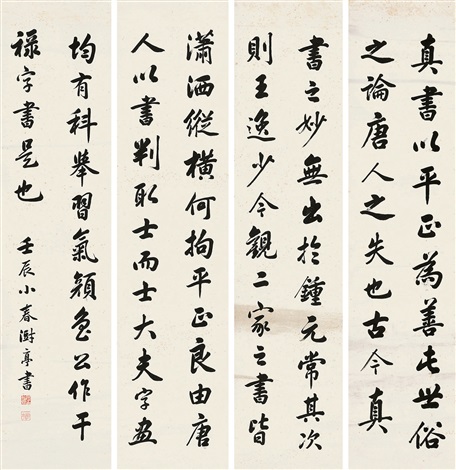 真書以平正為善此世俗
之論唐人之失也古今真
書之妙無出於鍾元常其次
則王逸少今觀二家之書皆
瀟洒縱橫何拘平正良由唐
人以書判取士而士大夫字畫
均有科舉習氣顏魯公作干
祿字書是也
壬辰小春澍亭書